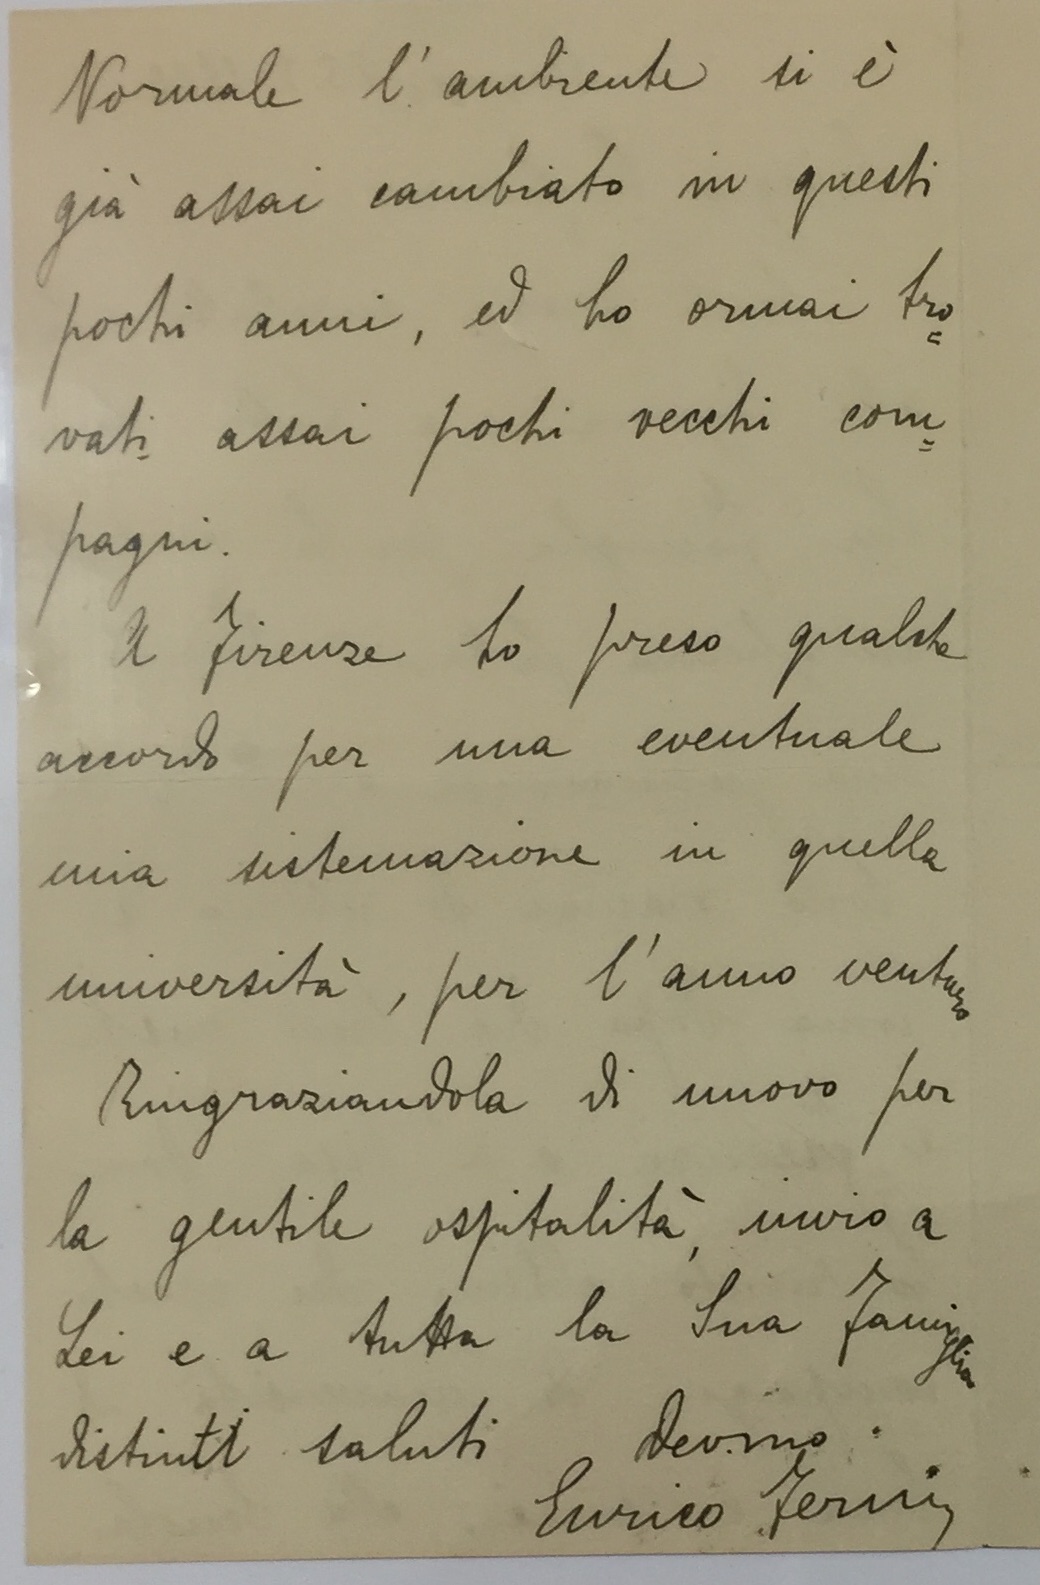 Normale l'ambiente si è
già assai cambiato in questi
pochi anni, ed ho ormai tro=
vati assai pochi vecchi com=
pagni.
A Firenze ho preso qualche
accordo per una eventuale
mia sistemazione in quella
università, per l'anno venturo
Ringraziandola di nuovo per
la gentile ospitalità, invio a
Lei e a tutta la Sua Famiglia
distinti saluti Dev.mo.
Enrico Fermi